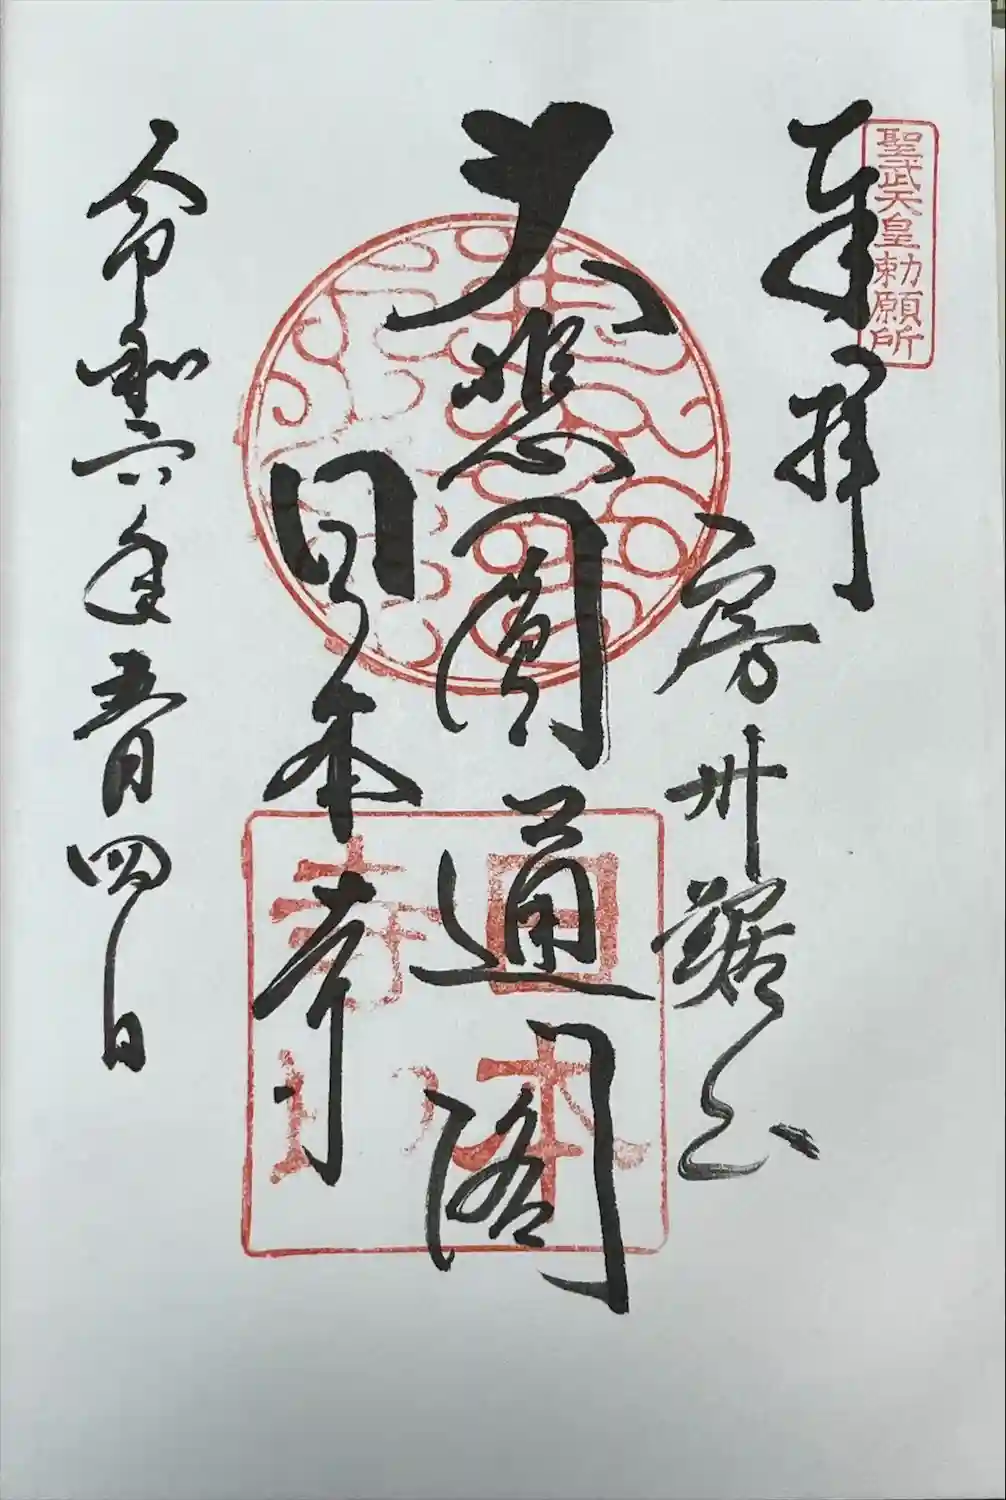 聖武天皇勅願所
奉拝
房州鋸山
大悲圓通閣
日本寺
令和六年五月四日
日本寺